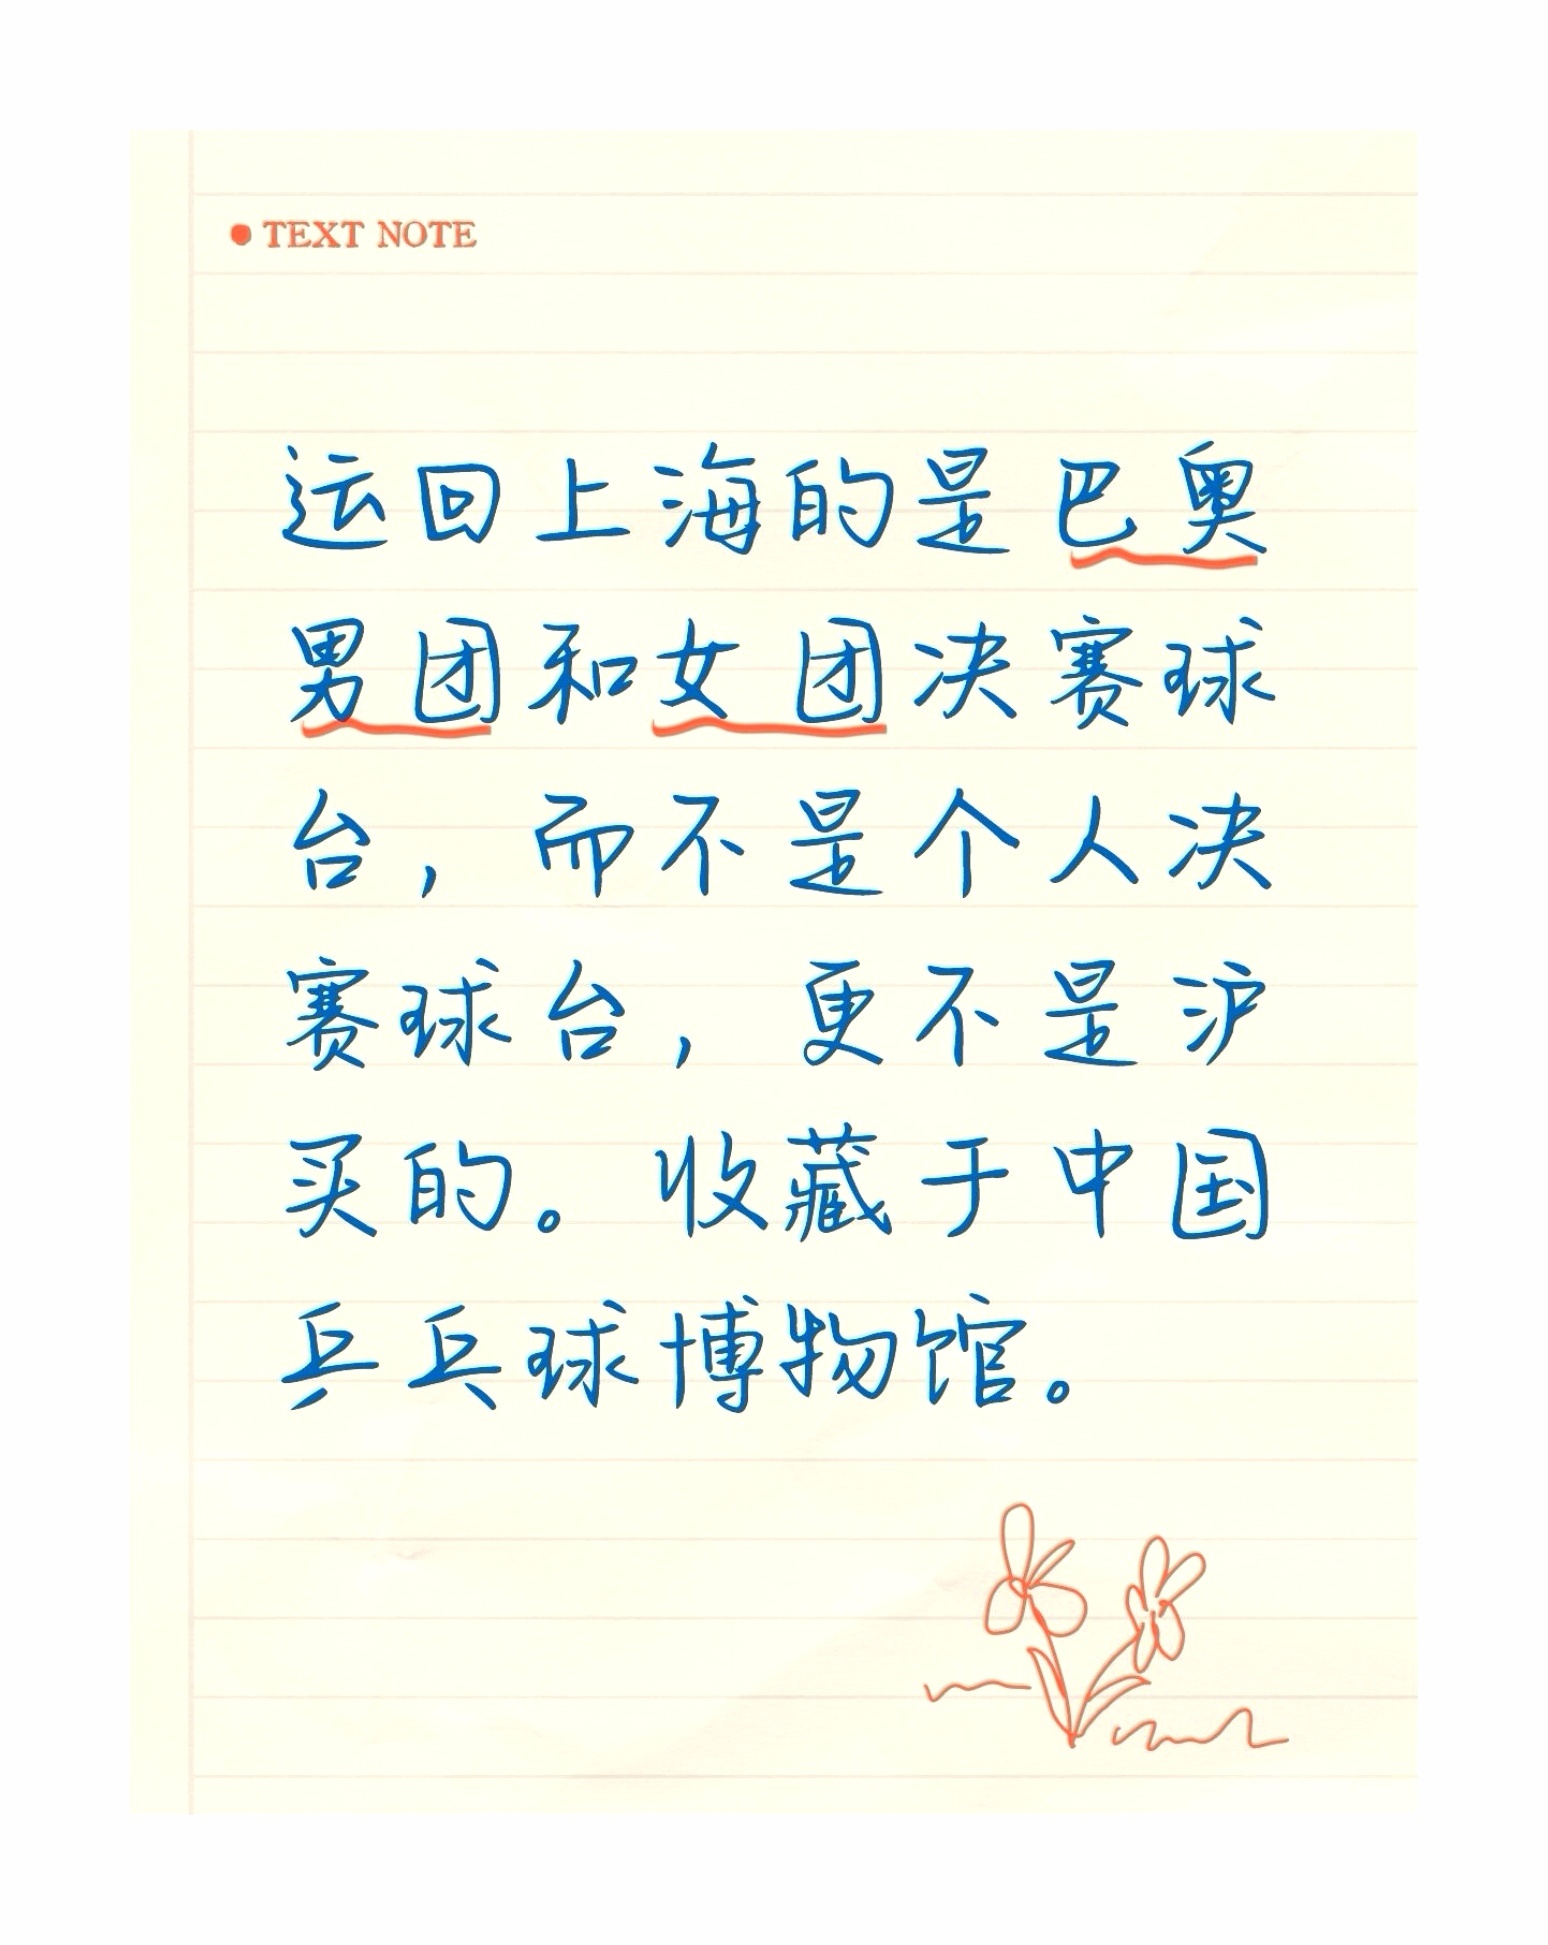 TEXT NOTE
运回上海的是巴奥
男团和女团决赛球
台，而不是个人决
赛球台，更不是沪
买的。收藏于中国
乒乓球博物馆。